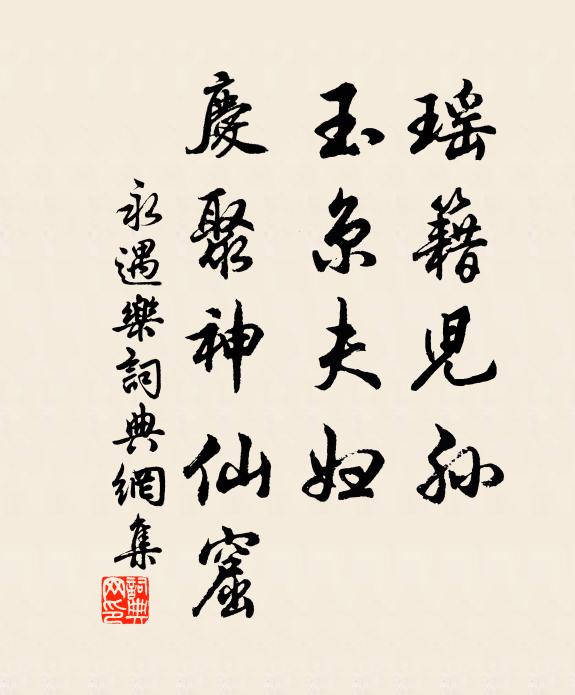 瑶籍兒孫
玉京夫婦
慶聚神仙窟
永遇樂詞典網集
詞典網印